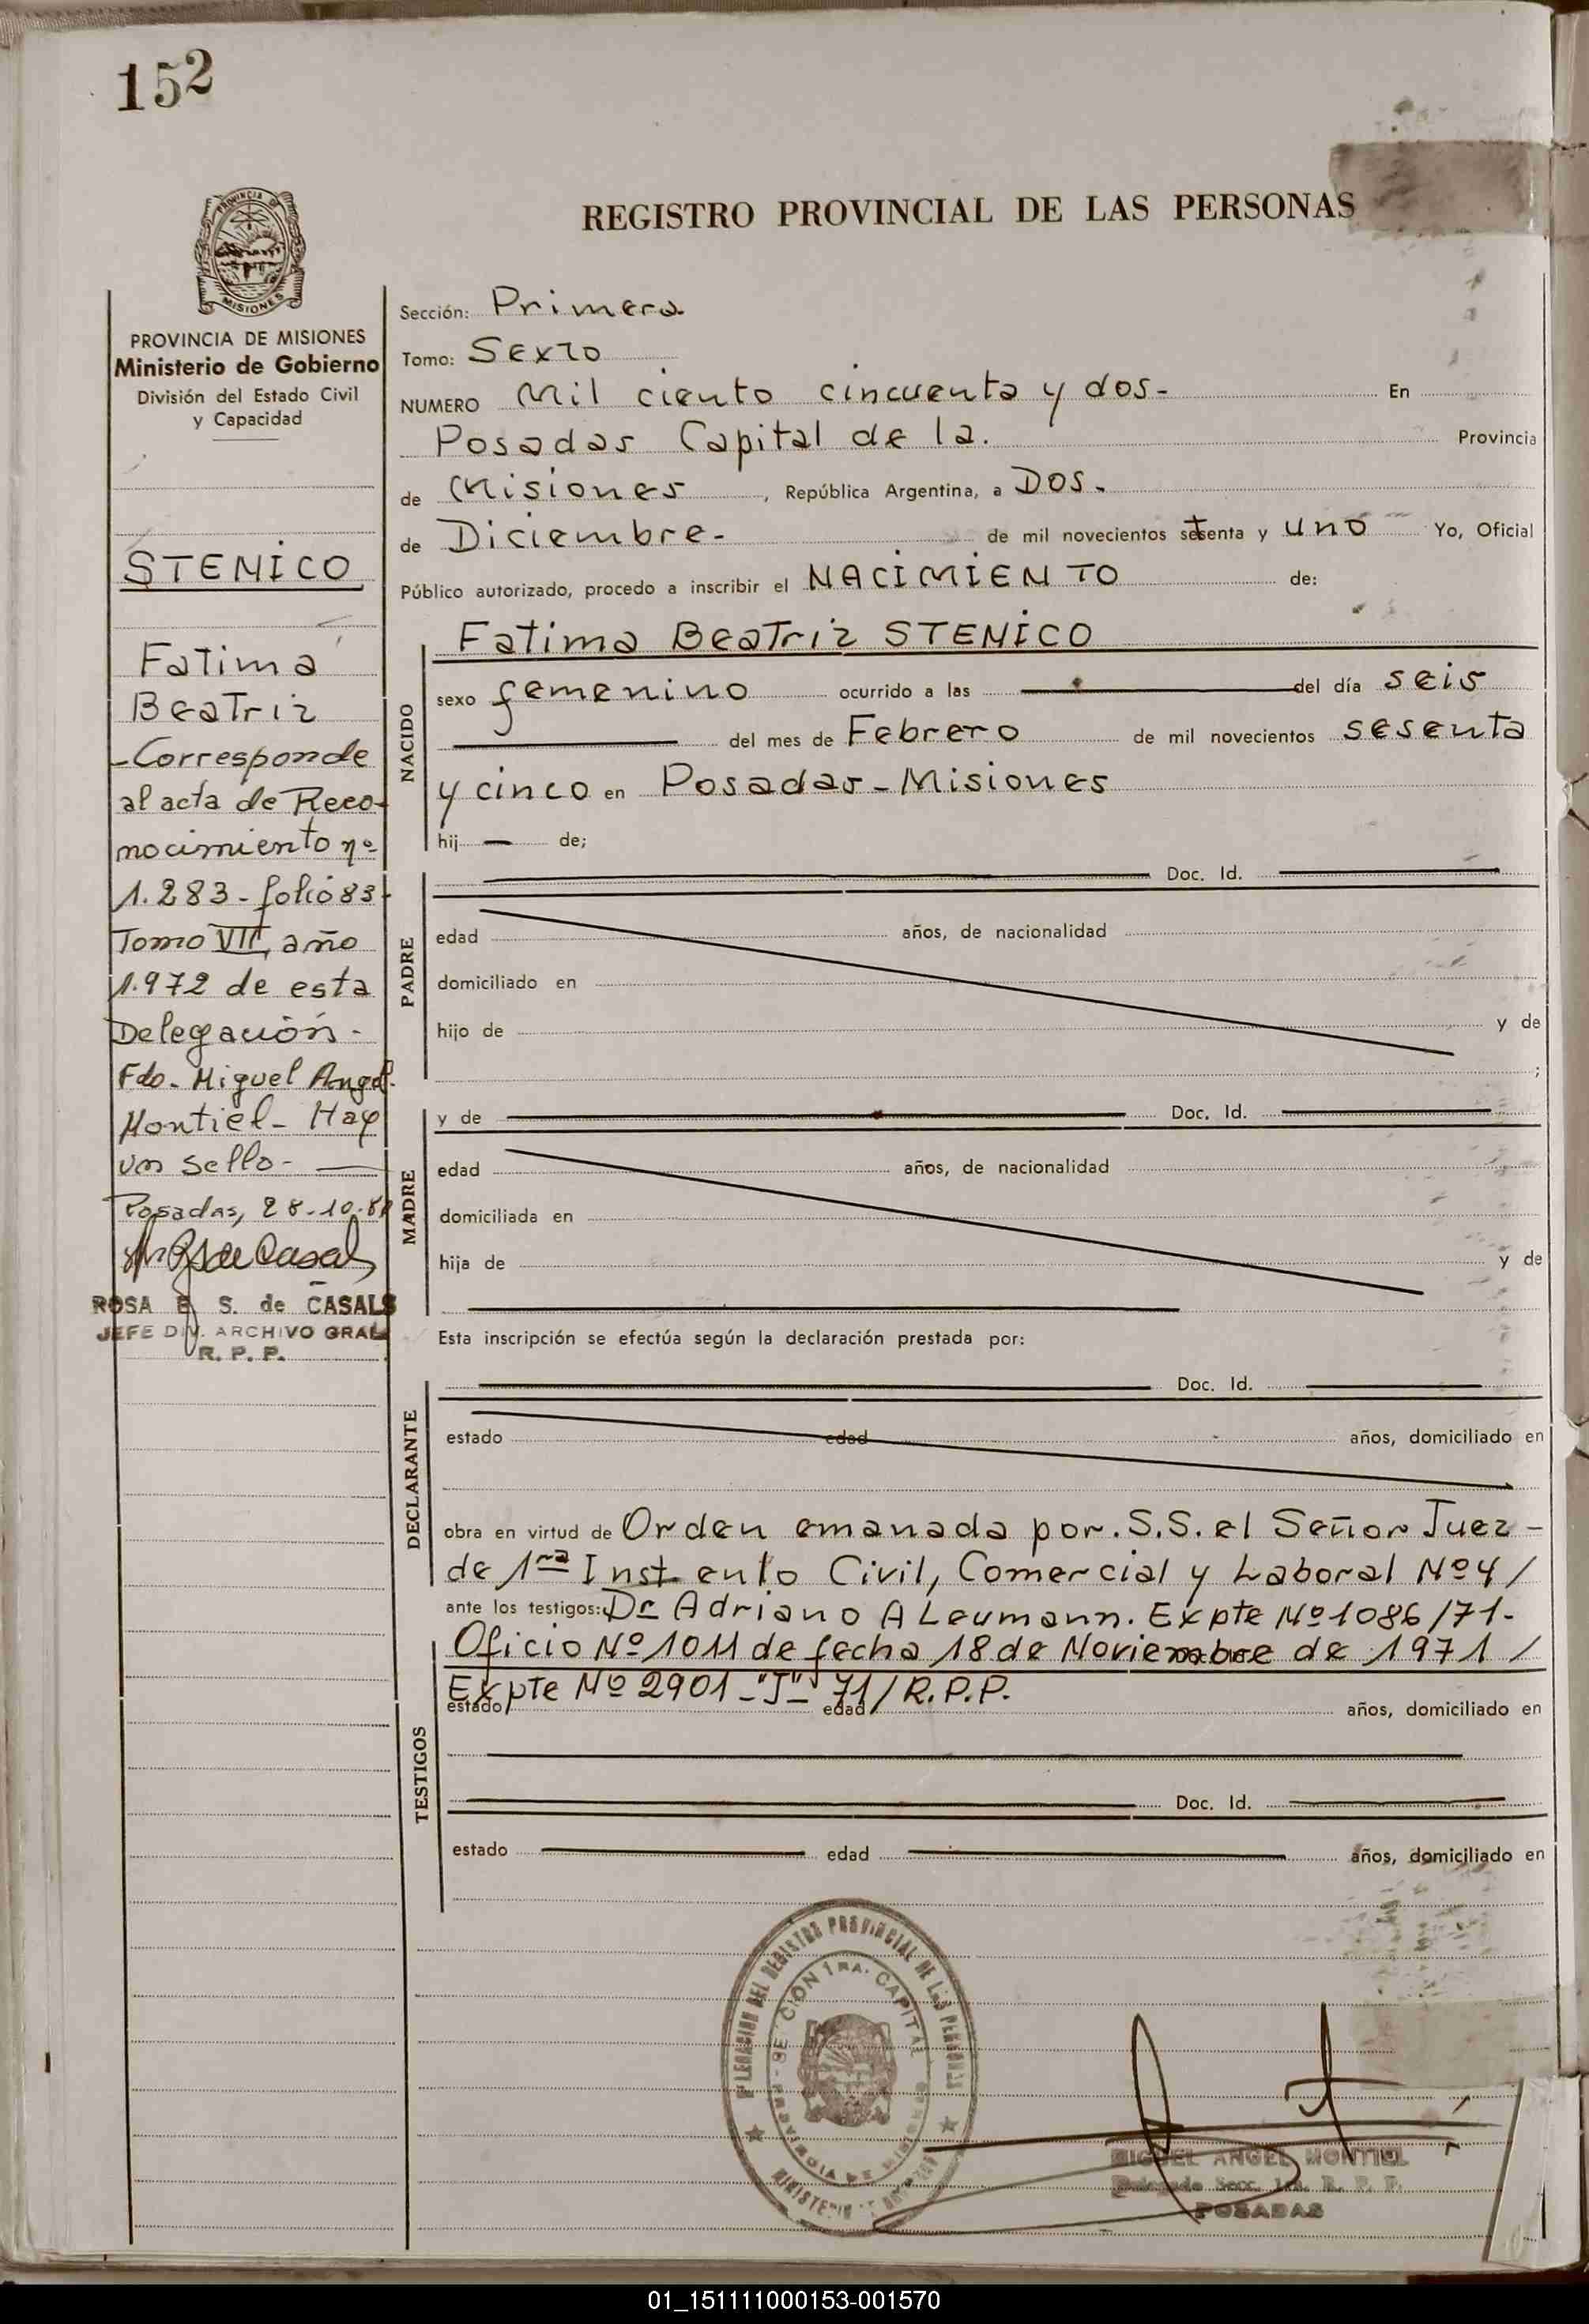 152
REGISTRO PROVINCIAL DE LAS PERSONAS
PROVINCIA DE
MISIONES
PROVINCIA DE MISIONES
Ministerio de Gobierno
División del Estado Civil
y Capacidad
STENICO
Fatima
Beatriz
-Corresponde
al acta de Reco-
nocimiento nº
1.283 - folio 83-
Tomo VII, año
1.972 de esta
Delegación-
Fdo. Miguel Angel
Montiel- Hay
un sello-
Posadas, 28-10-
ROSA E. S. de CASALS
JEFE DIV. ARCHIVO GRAL
R. P. P.
Sección: Primera
Tomo: Sexto
NUMERO Mil ciento cincuenta y dos- En
Posadas Capital de la. Provincia
de Misiones, República Argentina, a Dos-
de Diciembre- de mil novecientos setenta y uno Yo, Oficial
Público autorizado, procedo a inscribir el NACIMIENTO de:
NACIDO
Fatima Beatriz STENICO
sexo femenino ocurrido a las del día seis
del mes de Febrero de mil novecientos sesenta
y cinco en Posadas - Misiones
hij de;
PADRE
Doc. Id.
edad años, de nacionalidad
domiciliado en
hijo de y de
;
MADRE
y de Doc. Id.
edad años, de nacionalidad
domiciliada en
hija de y de
Esta inscripción se efectúa según la declaración prestada por:
DECLARANTE
Doc. Id.
estado edad años, domiciliado en
obra en virtud de Orden emanada por. S.S. el Señor Juez-
de 1ra Inst. en lo Civil, Comercial y Laboral Nº4/
ante los testigos: Dr Adriano A Leumann. Expte Nº1086/71-
Oficio Nº 1011 de fecha 18 de Noviembre de 1971/
Expte Nº 2901-"J"- 71/R.P.P.
estado edad años, domiciliado en
TESTIGOS
Doc. Id.
estado edad años, domiciliado en
DELEGACION DEL REGISTRO PROVINCIAL DE LAS PERSONAS
SECCION 1RA. CAPITAL
PROVINCIA DE MISIONES
MIGUEL ANGEL MONTIEL
Delegado Secc. 1ra. R. P. P.
POSADAS
01_151111000153-001570